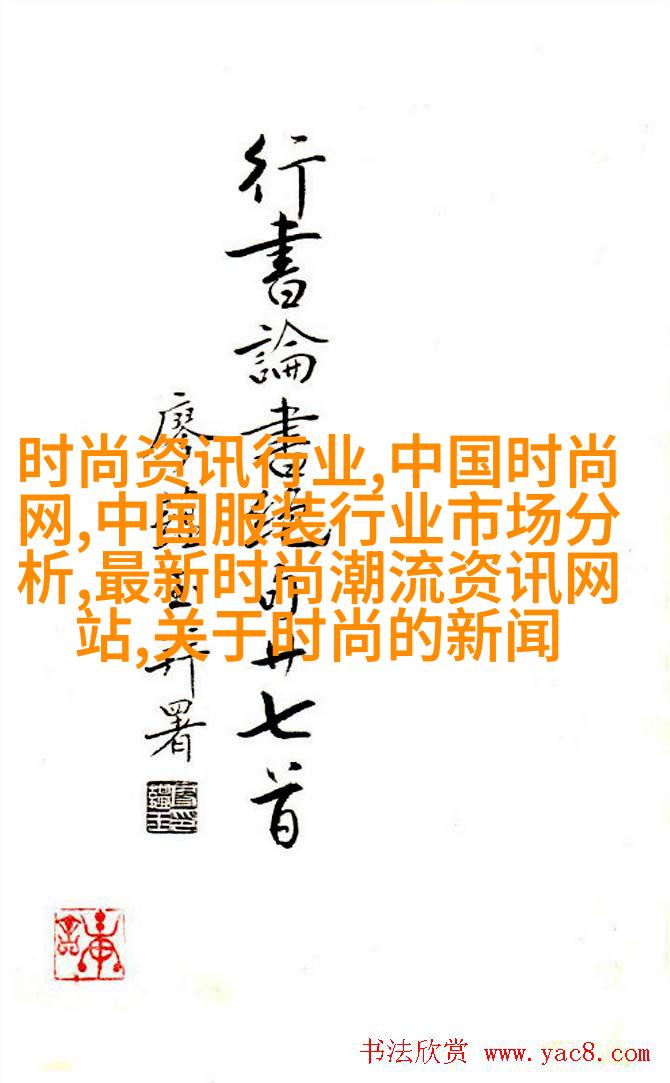 行書論書絕句廿七首
廖蘊玉并署
时尚资讯行业,中国时尚
网,中国服装行业市场分
析,最新时尚潮流资讯网
站,关于时尚的新闻
书法欣赏 www.yac8.com